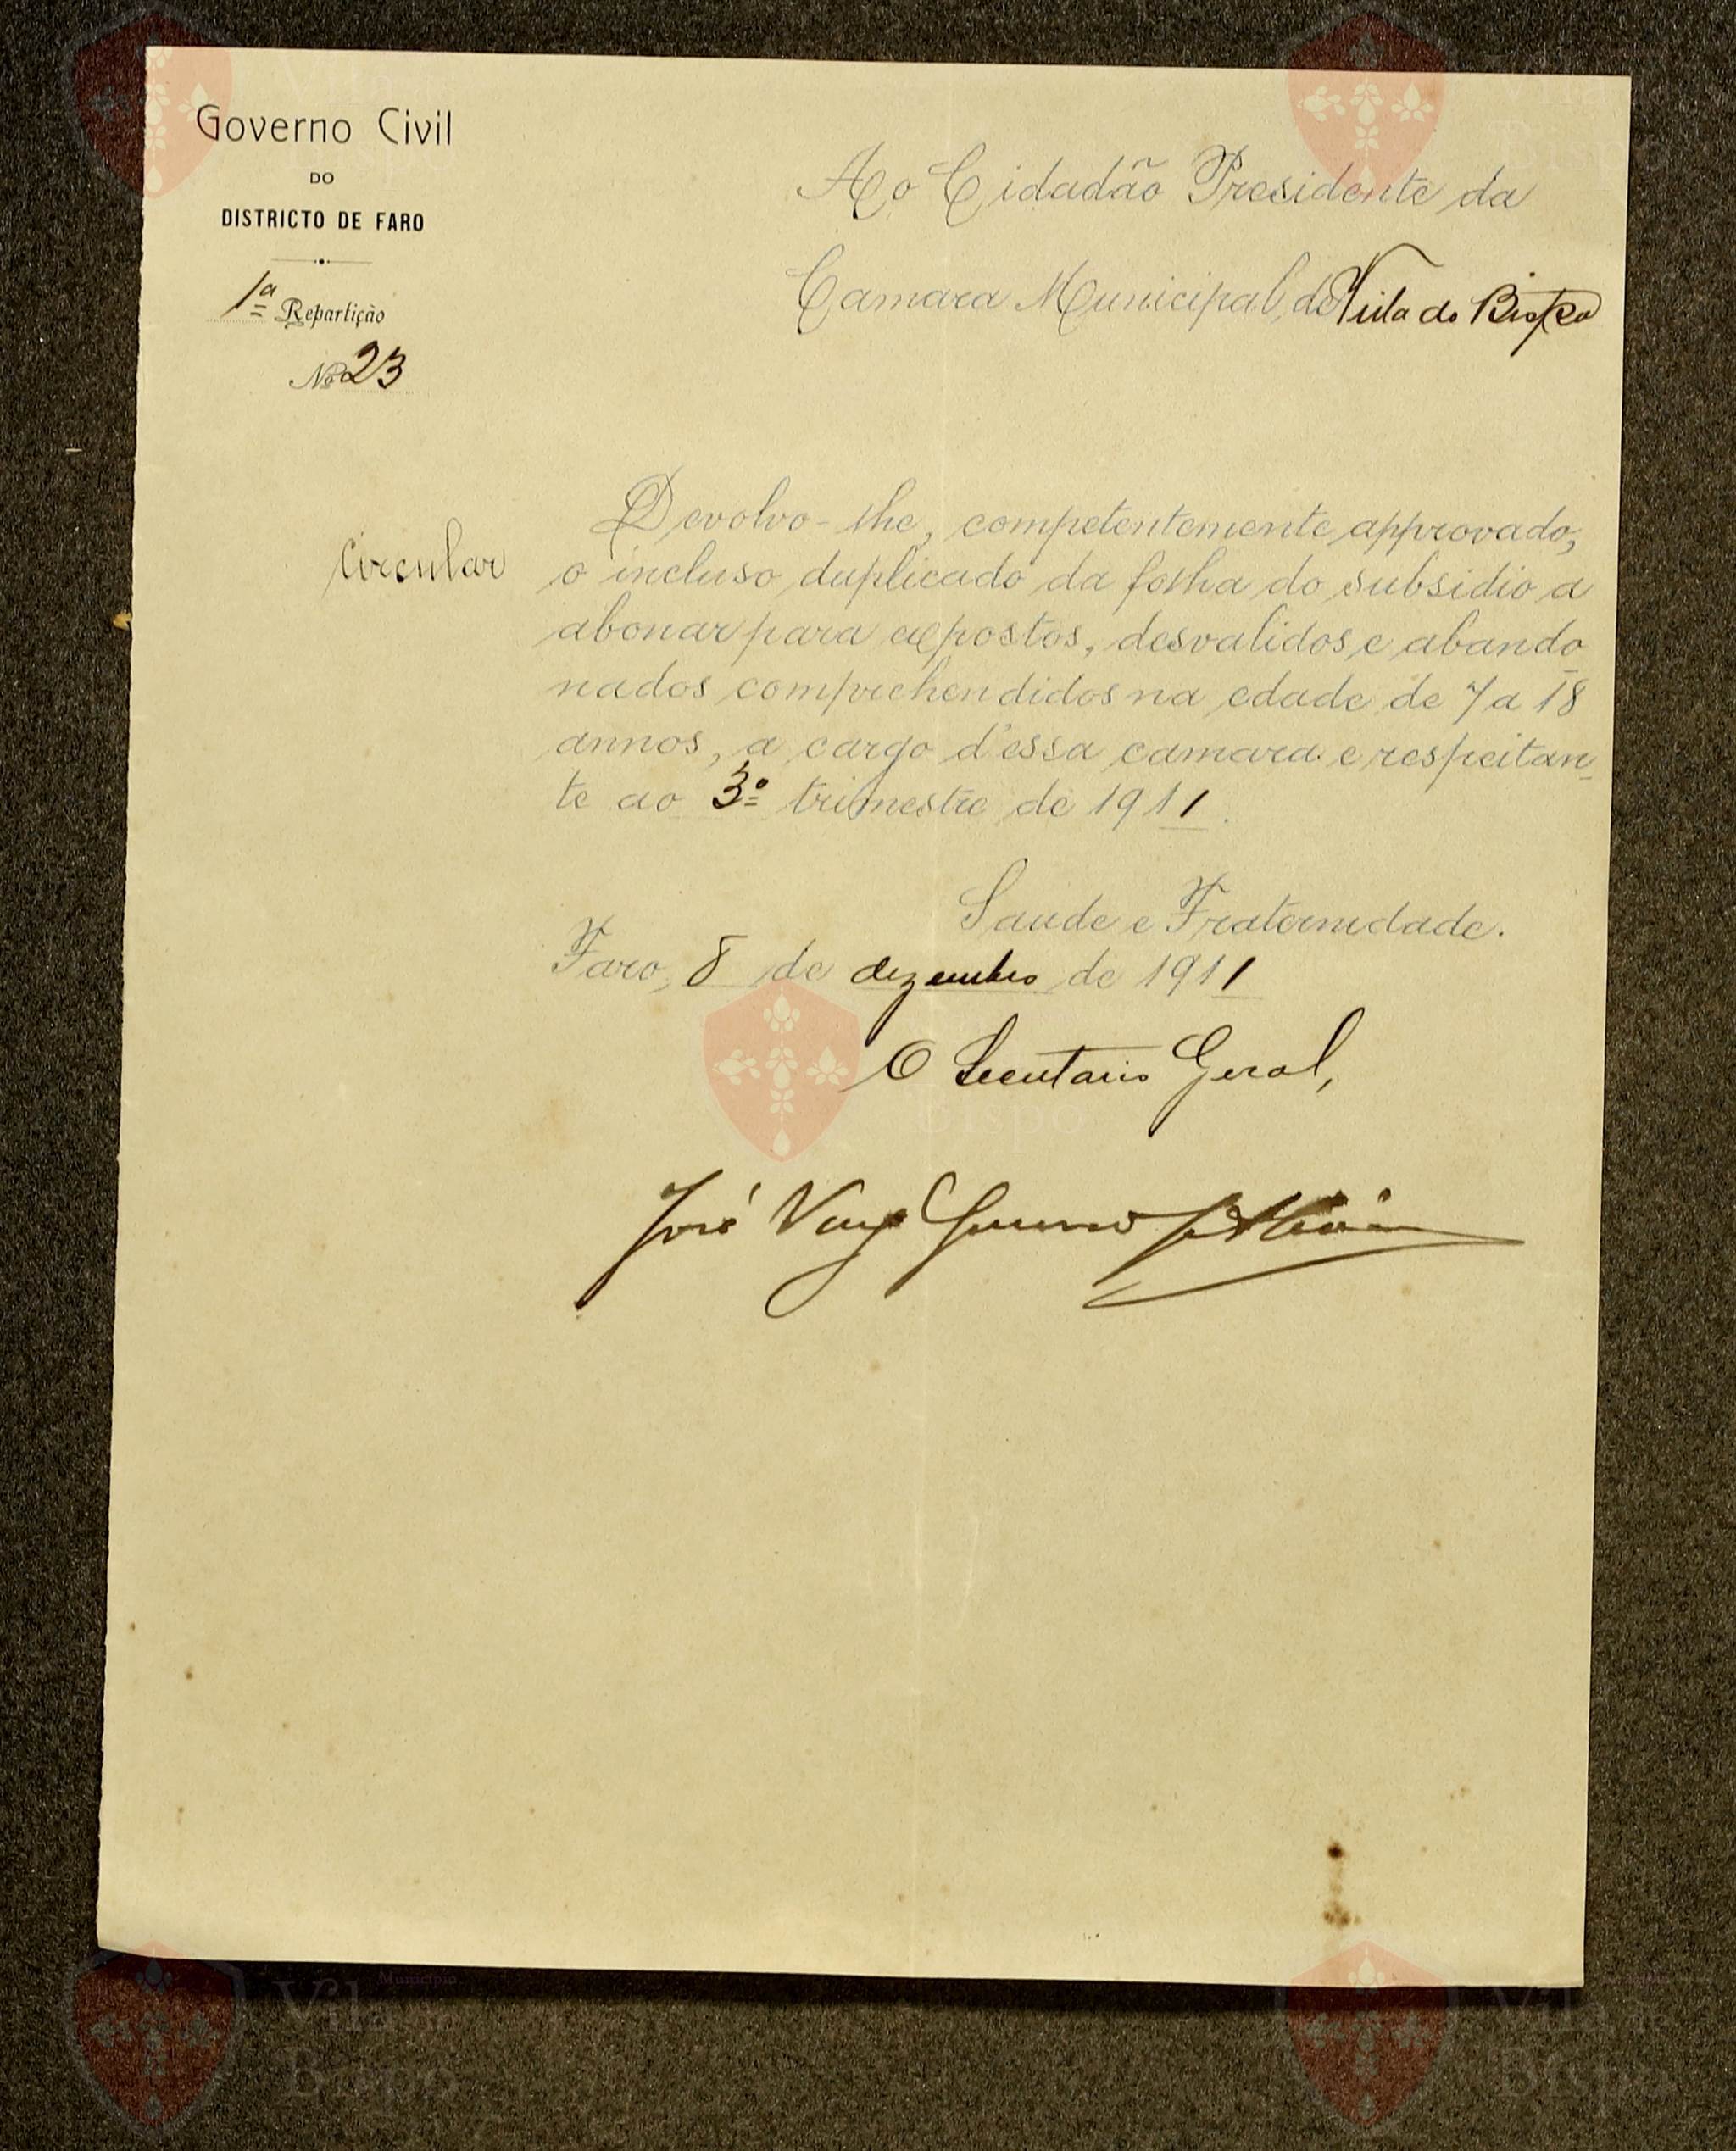 Governo Civil
DO
DISTRICTO DE FARO
1ª Repartição
Nº 23
Ao Cidadão Presidente da
Camara Municipal de Villa do Bispo
Circular
Devolvo-lhe, competentemente approvado,
o incluso duplicado da folha do subsidio a
abonar para expostos, desvalidos e abando-
nados comprehendidos na edade de 7 a 18
annos, a cargo d'essa camara e respeitan-
te ao 3º trimestre de 1911.
Saude e Fraternidade.
Faro, 8 de dezembro de 1911
O Secretario Geral,
José Vaz Guerreiro
Município
Vila do
Bispo
Vila do
Bispo